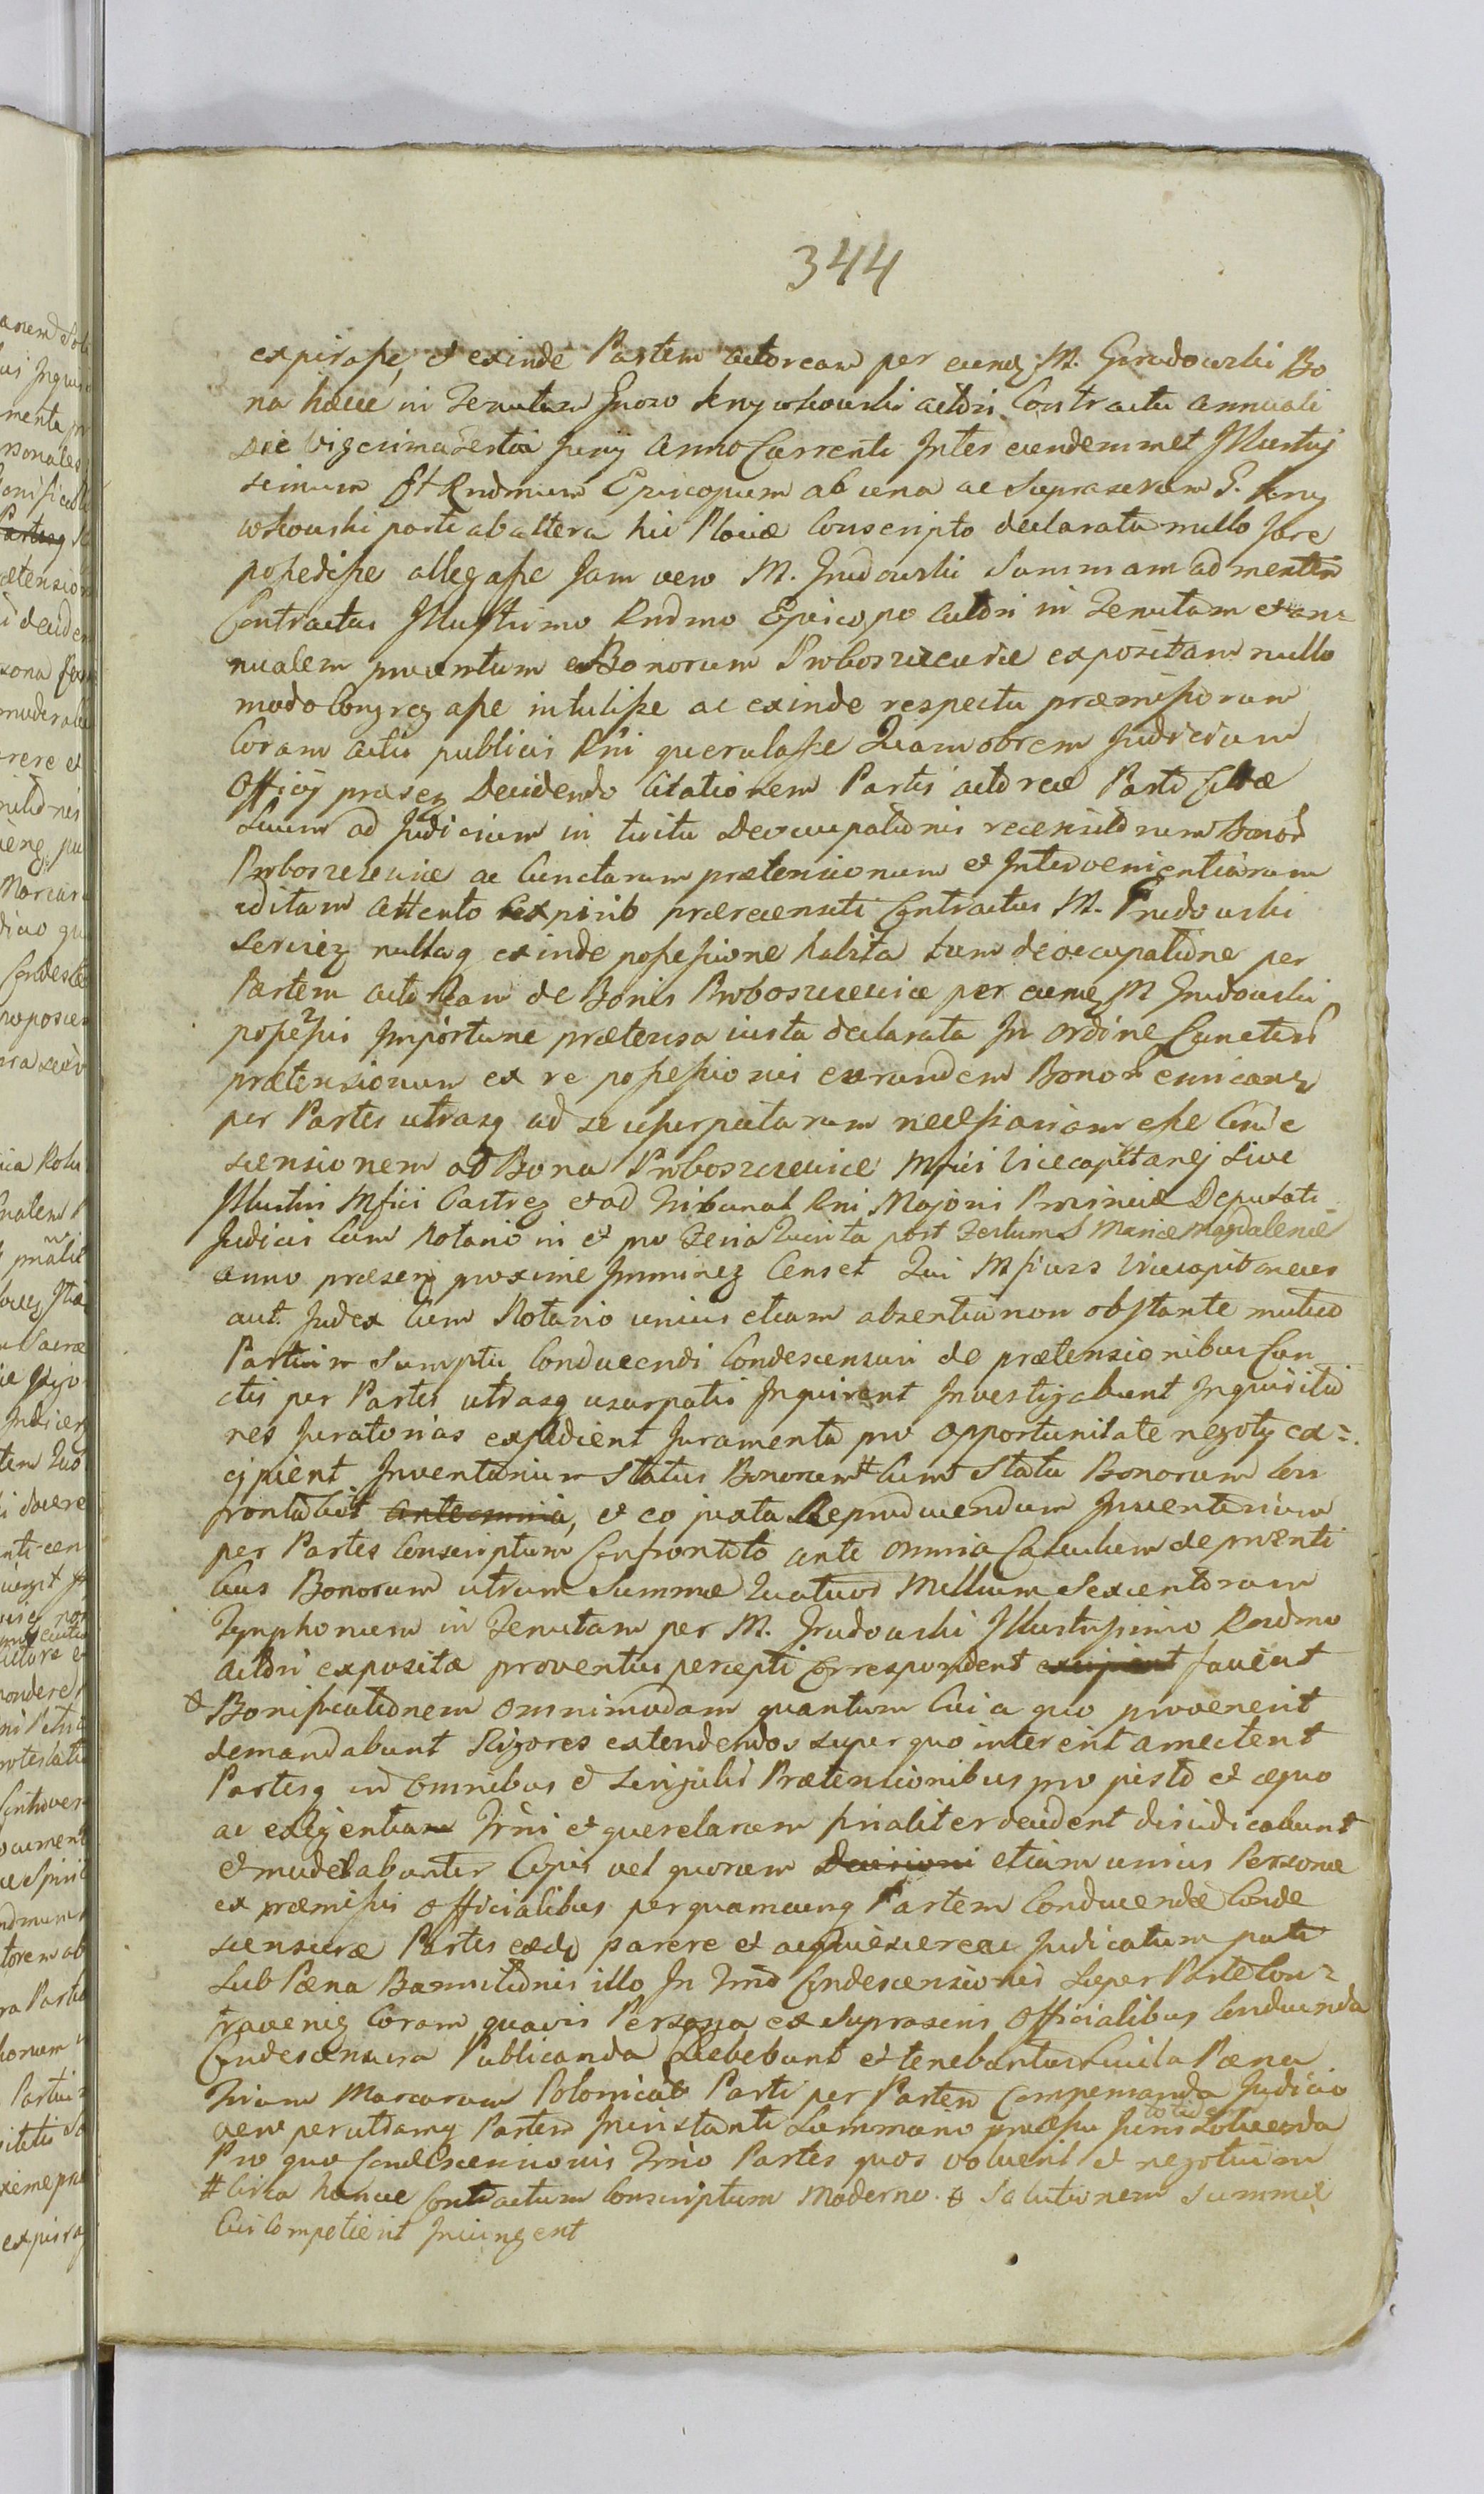 344
expirasse, et exinde Partem actoream per eung M. Grudowski Bo
na haece in Tenutam Gnoso Krzywkowski actori Contractu annuali
Die Vigesima Sextia Junij Anno Currenti Inter eundemmet Illustris
simum et Rndmum Episcopum ab una ac Suprascrum G. Krzy
wkowski parte ab altera hic Plociæ Conscripto declarata nullo Jure
possedisse allegasse Jam vero M. Grudowski Summam ad mentem
Contractus Illustrimo Rndmo Episcopo actori in Tenutam et an=
nualem proventum e Bonorum Proboszczewice expositam nullo
modo Congregasse intulisse ac exinde respectu præmissorum
Coram actis publicis Rni querulasse Quamobrem Judicium
Officij præseng Decidendo Citationem Partis actoreæ Parti Citatæ
Suum ad Judicium in tuitu Deoccupationis recensitorum Bonor
Proboszczewice ac Cunctarum prætensionum et Intervenientiarum
editam Attento expirio prærecensiti Contractus M. Grudowski
Serviez nullaq exinde possessione habita tum deoccupatione per
Partem actoream de Bonis Proboszczewice per eumq M Grudowski
possessis Importune prætensa iusta declarata In ordine Cunctar
prætensionum ex re possessionis eorundem Bonor emicang
per Partes utrasq ad se usurpatarum necessariam esse Conde
scensionem ad Bona Proboszczewice Mfici Vicecapitanej Sive
Illustris Mfici Castreg et ad Tribunal Rni Majoris Provinciæ Deputati
Judicis Cum Notario in et pro Feria Quinta post Festum S Mariæ Magdalenæ
anno præseng proxime Imminez Censet Qui Mficus Vicecapitaneus
aut Judex Cum Notario unius etiam absentia non obstante mutuo
Partium Sumptu Conducendi Condescensuri de prætensionibus Cun
ctis per Partes utrasq usurpatis Inquirent Investigabunt Inquisitio
nes Juratorias expedient Juramenta pro opportunitate negotij ex=
cipient Inventarium Status Bonorum # Cum Statu Bonorum Con
frontabit ante omnia, et eo juxta Reproducendum Inventarium
per Partes Conscriptum Confrontato ante omnia Calculum de proventi
bus Bonorum utrum Summæ Quatuor Millium Sexcentorum
Tynphonum in Tenutam per M. Grudowski Illustrissimo Rndmo
actori exposita proventus percepti correspondent excipient facient
& Bonificationem omnimodam quantum Cui a quo provenerit
demandabunt Rigores extendendos super quo intererit amectent
Partesq in omnibus et singulis Prætensionibus pro justo et æquo
ac exigentia Trni et querelarum finaliter decident dijudicabunt
et moderabuntur Cujus vel quorum Decisioni etiam unius Personæ
ex præmissis officialibus per quamcunq Partem Conducendæ Conde
scensuræ Partes eædg parere et acquiescere ac Judicatum pati
Sub Pæna Bannitionis illo In Trno Condescensionis Super Parte Con=
travenig Coram quavis Persona ex Suprascris Officialibus Conducenda
Condescensura Publicanda Debebunt et tenebantur Cuicla Pæna
Trium Marcarum Polonical Parti per Partem Compensanda Judicio
vero per utramq Partem Juri stanti Summario processu Juris totidem Solvenda
Pro quo Condescensionis Trno Partes quos voluerit et negotium
# Circa hancce Contractum Conscriptum Moderno & Solutionem Summæ
Cui Competierit Injungent